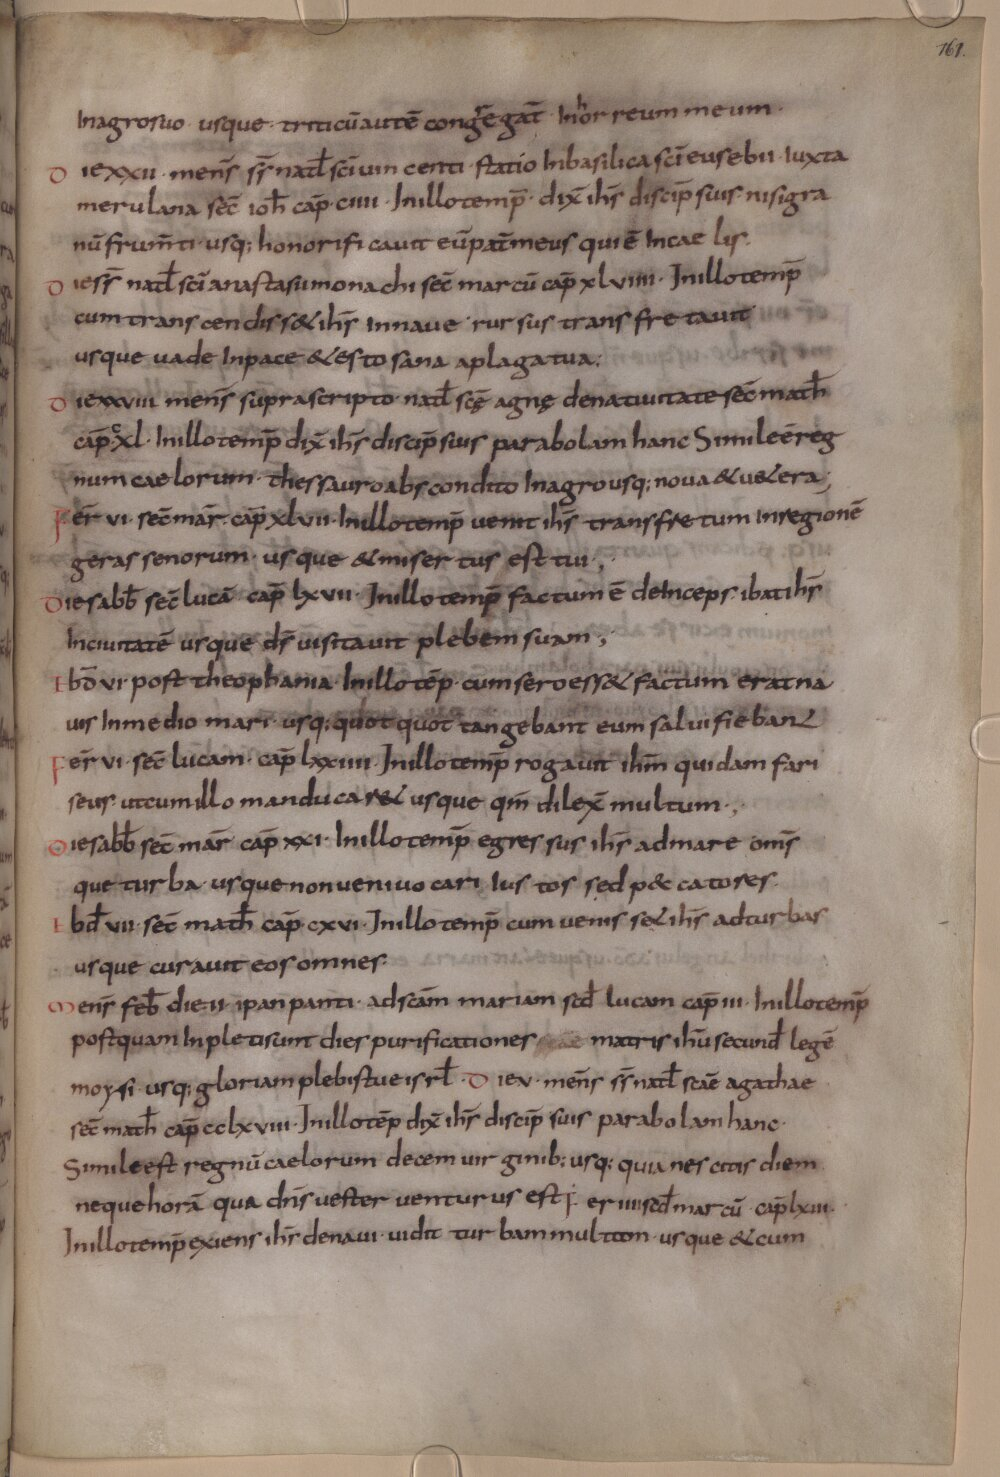 161.
Inagrosuo · usque · triticū autē congregat̄ · Inhorreum meum ·
Die xxii · mens̄ · ss̄ natł sc̄i uincenti · statio Inbasilica sc̄i eusebii · iuxta
merulana sec̄ ioh̄ cap̄ · ciiii · Inillotemp̄ · dix̄ ihs̄ discip̄ suis · nisigra
nū frum̄ti · usq; honorificauit eū pat̄ meus qui ē Incaelis ·
Die ss̄ natł sc̄i anastasii monachi sec̄ marcū cap̄ xlviiii · Inillotemp̄
cum transcendiss& ihs̄ Innaue · rursus transfretauit
usque uade Inpace & esto sana aplagatua ;
Die xxviii mens̄ suprascripto · natł scę̄ agnę denatiuitate sec̄ math̄
cap̄ xl · Inillotemp̄ dix̄ ihs̄ discip̄ suis parabolam hanc Simile ē reg
num caelorum · thessauro abscondito Inagro usq; noua & u&era ;
Fer̄ vi · sec̄ mar̄ · cap̄ xlvii · Inillotemp̄ uenit ihs̄ transfretum Inregionē
gerassenorum · usque & misertus est tui ;
Die sabb̄ sec̄ lucā cap̄ lxvii · Inillotemp̄ factum ē deInceps ibat ihs̄
Inciuitatē usque ds̄ uisitauit plebem suam ;
Ebd̄ vi post theophania · Inillotēp · cum sero ess& factum erat na
uis Inmedio mari · usq; quotquot tangebant eum salui fiebant
Fer̄ vi · sec̄ lucam · cap̄ lxxiiii · Inillotemp̄ rogauit ihm̄ quidam fari
seus ut cum illo manducar& usque qm̄ dilex̄ multum ·,
Die sabb̄ sec̄ mar̄ cap̄ xxi · Inillotemp̄ egressus ihs̄ admare omīs
que turba · usque non ueni uocari Iustos sed p&catores ·
Ebd̄ vii · sec̄ math̄ cap̄ · cxvi · Inillotemp̄ cum uenisset ihs̄ adturbas
usque curauit eos omnes ·
Mens̄ feb̄ die ii · ipanpanti · ad sc̄am mariam scd̄ lucam cap̄ iii · Inillotemp̄
postquam Inpletisunt dies purificationes matris ihū secund̄ legē
moysi · usq; gloriam plebis tue isrł · Die v · mens̄ ss̄ natł scāe agathae
sec̄ math̄ cap̄ cclxviii · Inillotēp dix̄ ihs̄ discip̄ suis parabolam hanc ·
Simile est regnū caelorum decem uirginib; usq; quia nescitis diem
neque horā qua dn̄s uester uenturus est · Fer iiii sed̄ marcū cap̄ lxiii ·
Inillotemp̄ exiens ihs̄ denaui · uidit turbam multam · usque & cum